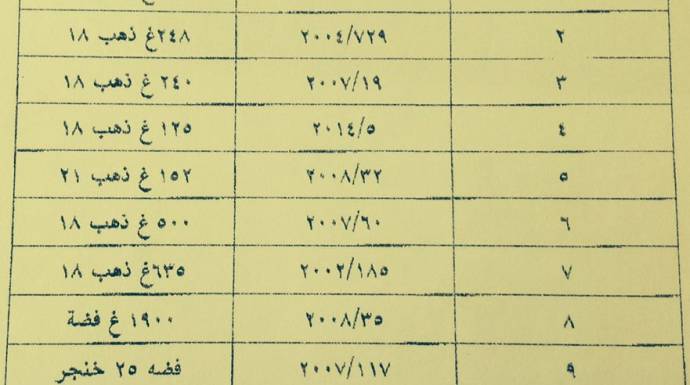 ٢ ٢٠٠٤/٧٢٩ ٢٤٨غ ذهب ١٨
٣ ٢٠٠٧/١٩ ٢٤٠ غ ذهب ١٨
٤ ٢٠١٤/٥ ١٢٥ غ ذهب ١٨
٥ ٢٠٠٨/٣٢ ١٥٢ غ ذهب ٢١
٦ ٢٠٠٧/٦٠ ٥٠٠ غ ذهب ١٨
٧ ٢٠٠٢/١٨٥ ٦٣٥غ ذهب ١٨
٨ ٢٠٠٨/٣٥ ١٩٠٠ غ فضة
٩ ٢٠٠٧/١١٧ فضه ٢٥ خنجر